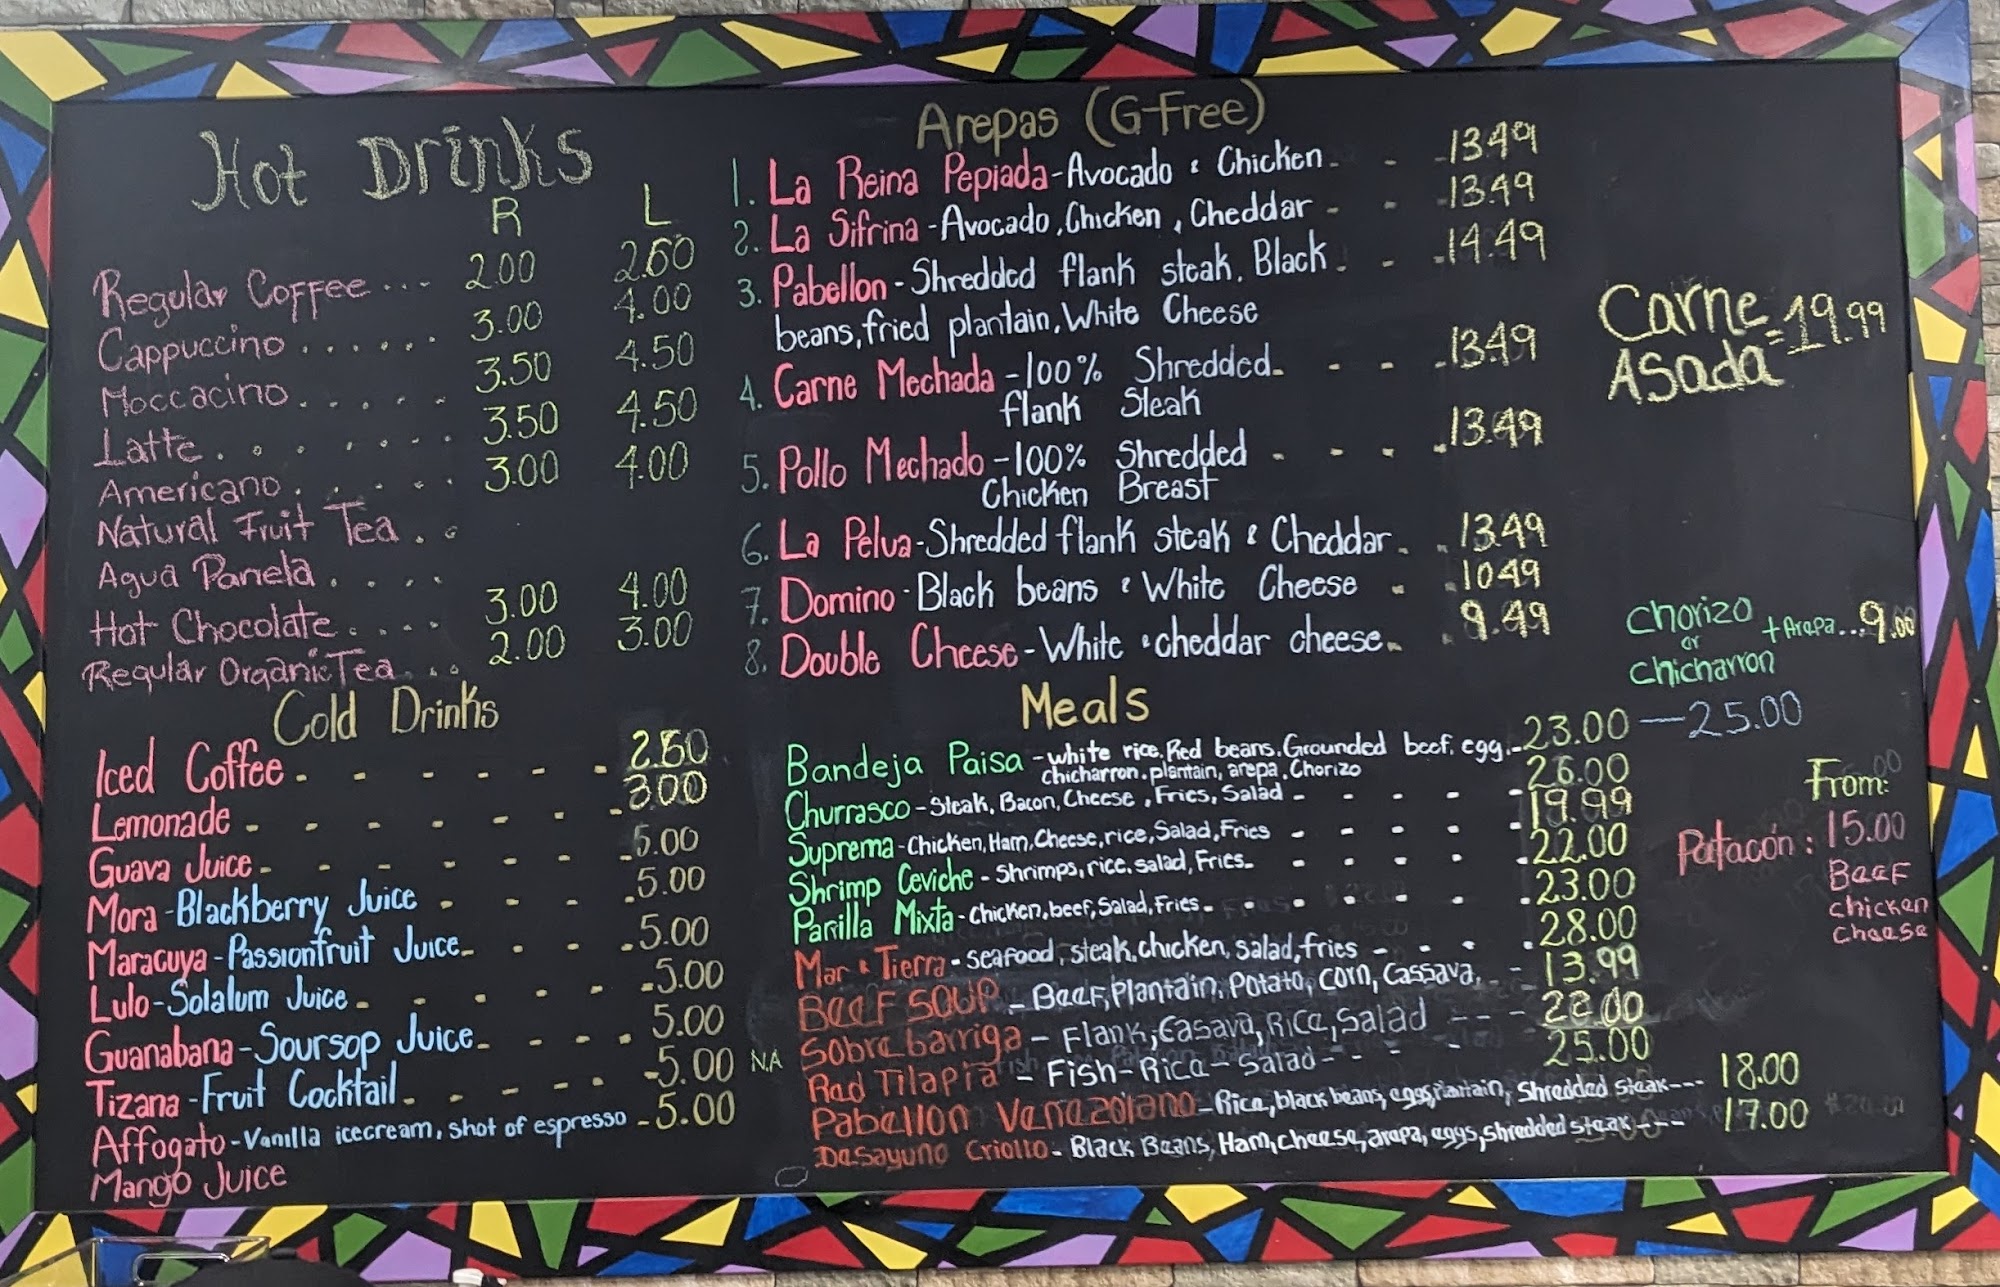 Hot Drinks
R L
Regular Coffee ... 2.00 2.50
Cappuccino ...... 3.00 4.00
Moccacino ..... 3.50 4.50
Latte ...... 3.50 4.50
Americano ..... 3.00 4.00
Natural Fruit Tea ..
Agua Panela ....
Hot Chocolate .... 3.00 4.00
Regular Organic Tea ... 2.00 3.00
Cold Drinks
Iced Coffee - - - - - - 2.50
Lemonade - - - - - - - 3.00
Guava Juice - - - - - - 5.00
Mora - Blackberry Juice - - - 5.00
Maracuya - Passionfruit Juice - - - 5.00
Lulo - Solalum Juice - - - - - 5.00
Guanabana - Soursop Juice - - - - 5.00
Tizana - Fruit Cocktail - - - - - 5.00 N.A
Affogato - Vanilla icecream, shot of espresso - 5.00
Mango Juice
Arepas (G-Free)
1. La Reina Pepiada - Avocado & Chicken - - - 13.49
2. La Sifrina - Avocado, Chicken, Cheddar - - - 13.49
3. Pabellon - Shredded flank steak, Black - - - 14.49
beans, fried plantain, White Cheese
4. Carne Mechada - 100% Shredded - - - - 13.49
flank Steak
5. Pollo Mechado - 100% Shredded - - - - 13.49
Chicken Breast
6. La Pelua - Shredded flank steak & Cheddar - - 13.49
7. Domino - Black beans & White Cheese - - 10.49
8. Double Cheese - White & cheddar cheese - - 9.49
Meals
Bandeja Paisa - white rice, Red beans, Grounded beef, egg, - 23.00 — 25.00
chicharron, plantain, arepa, Chorizo
Churrasco - Steak, Bacon, Cheese, Fries, Salad - - - - - 26.00
Suprema - Chicken, Ham, Cheese, rice, Salad, Fries - - - - - 19.99
Shrimp Ceviche - Shrimps, rice, salad, Fries - - - - - - 22.00
Parilla Mixta - Chicken, beef, Salad, Fries - - - - - - - 23.00
Mar & Tierra - seafood, steak, chicken, salad, fries - - - - 28.00
Beef Soup - Beef, Plantain, Potato, corn, Cassava, - - 13.99
Sobrebarriga - Flank, Casava, Rice, Salad - - - 22.00
Red Tilapia - Fish - Rice - Salad - - - - 25.00
Pabellon Venezolano - Rice, black beans, eggs, plantain, Shredded steak --- 18.00
Desayuno Criollo - Black Beans, Ham, cheese, arepa, eggs, shredded steak --- 17.00
Carne
Asada = 19.99
Chorizo
or + Arepa ... 9.00
Chicharron
From:
Patacón: 15.00
Beef
chicken
cheese